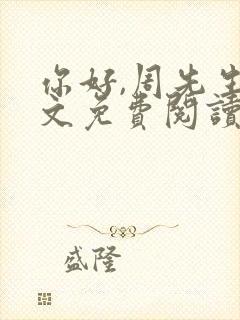 你好,周先生
文免費閱讀
盛隆